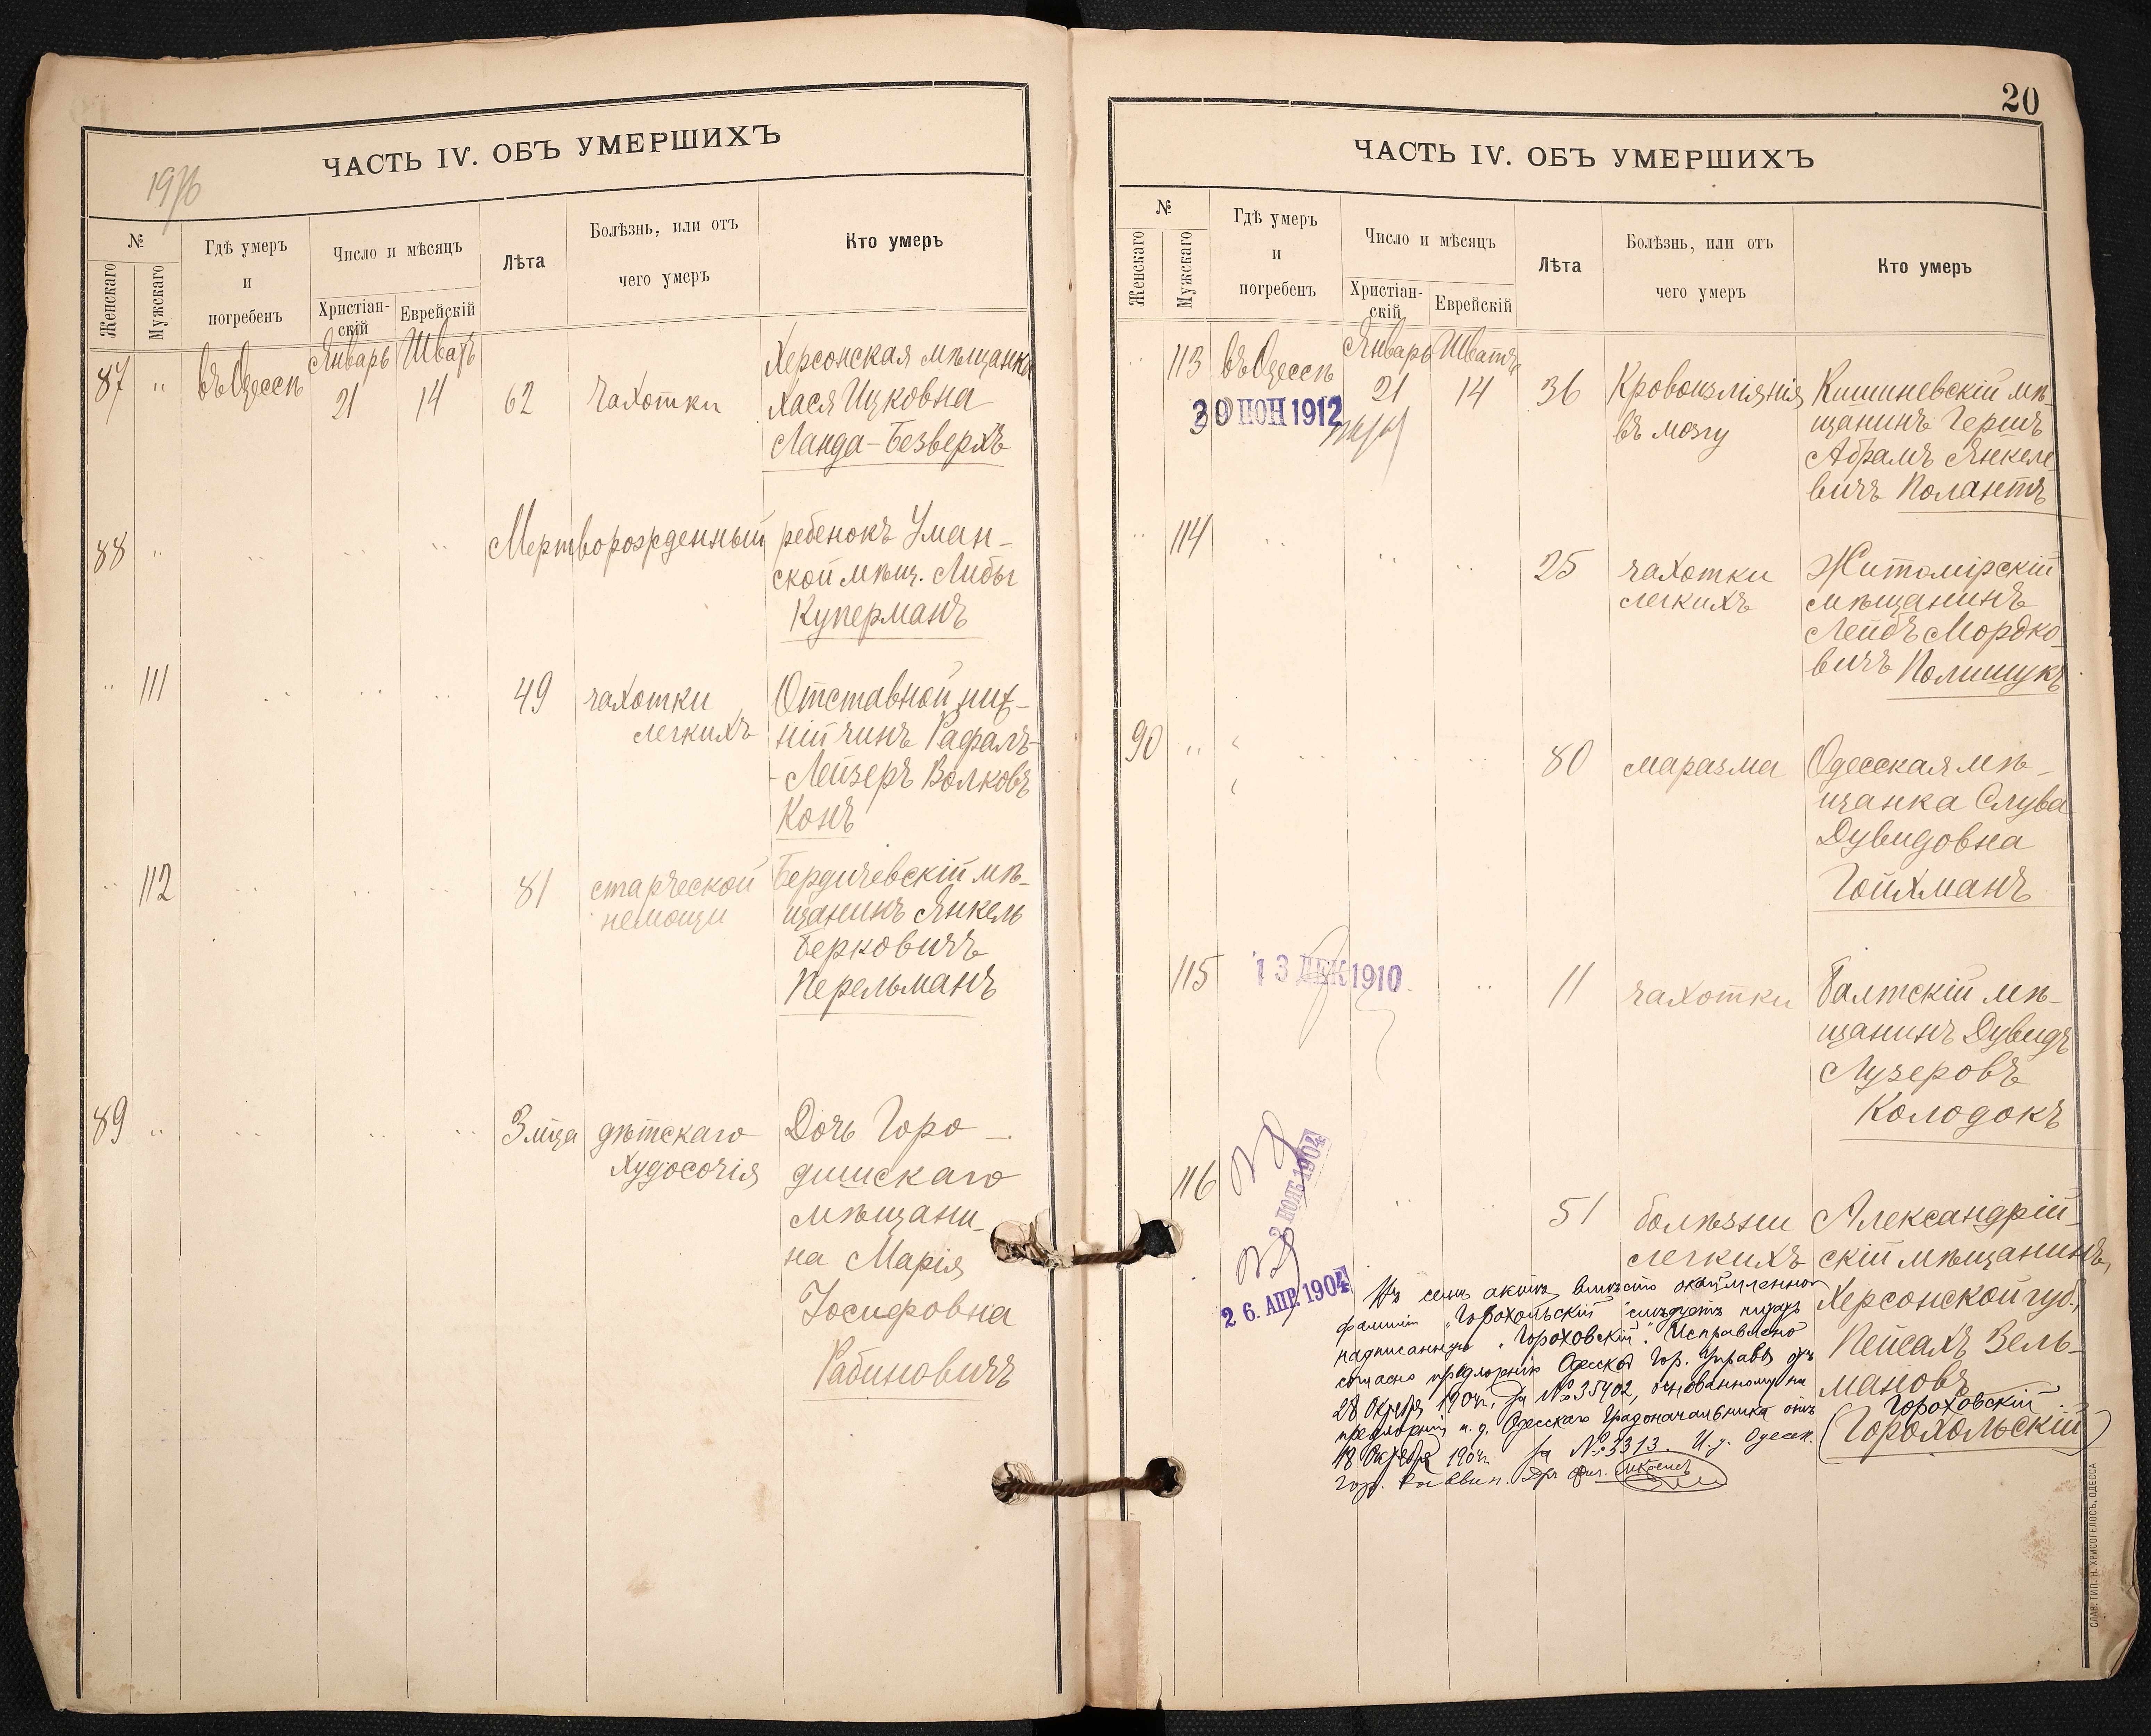 ЧАСТЬ IV. ОБЪ УМЕРШИХЪ
№
Женскаго
Мужскаго
Гдѣ умеръ
и
погребенъ
Число и мѣсяцъ
Христіан-
скій
Еврейскій
Лѣта
Болѣзнь, или отъ
чего умеръ
Кто умеръ
87 " въ Одессѣ Январь 21 Шватъ 14 62 Чахотки Херсонская мѣщанка
Хася Ицковна
Ланда-Безверхъ
88 " Мертворожденный ребенокъ Уман-
ской мѣщ. Либы
Куперманъ
" 111 49 чахотки Отставной ниж-
легкихъ ній чинъ Рафалъ-
-Лейзеръ Волковъ
Конъ
" 112 81 старческой Бердичевскій мѣ-
немощи щанинъ Янкель
Берковичъ
Перельманъ
89 " 3 мѣсца дѣтскаго Дочь Горо-
худосочія дищскаго
мѣщани-
на Марія
Іосифовна
Рабиновичъ
20
ЧАСТЬ IV. ОБЪ УМЕРШИХЪ
№
Женскаго
Мужскаго
Гдѣ умеръ
и
погребенъ
Число и мѣсяцъ
Христіан-
скій
Еврейскій
Лѣта
Болѣзнь, или отъ
чего умеръ
Кто умеръ
" 113 въ Одессѣ Январь 21 Шватъ 14 36 Кровоизліянія Кишиневскій мѣ-
въ мозгу щанинъ Гершъ
Абрамъ Янкеле-
вичъ Полантъ
30 ІЮН 1912
" 114 25 чахотки Житомірскій
легкихъ мѣщанинъ
Лейбъ Мордко-
вичъ Полищукъ
90 " 80 маразма Одесская мѣ-
щанка Слува
Дувидовна
Гойхманъ
115 13 ДЕК 1910 11 чахотки Балтскій мѣ-
щанинъ Дувидъ
Лузеровъ
Колодокъ
116 51 болѣзни Александрій-
легкихъ скій мѣщанинъ,
Херсонской губ.,
Пейсахъ Зель-
мановъ
Гороховскій
(Горохольскій)
1904
26. АПР. 1904
Въ семъ актѣ вмѣсто окаймленной
фамиліи „Горохольскій" слѣдуетъ читать
надписанную „Гороховскій". Исправлено
согласно предложенію Одесской Гор. Управы отъ
28 Октября 1904 г. за № 35402, основанному на
предложеніи и. д. Одесскаго Градоначальника отъ
18 Октября 1904 г. за № 3313. И. д. Одесск.
гор. Раввин.
СЛАВ. ТИП. Н. ХРИСОГЕЛОСЪ, ОДЕССА